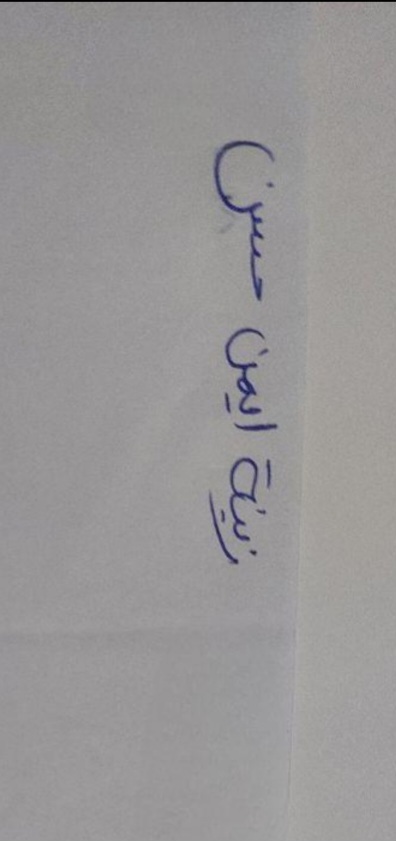 زينة ايمن حسن